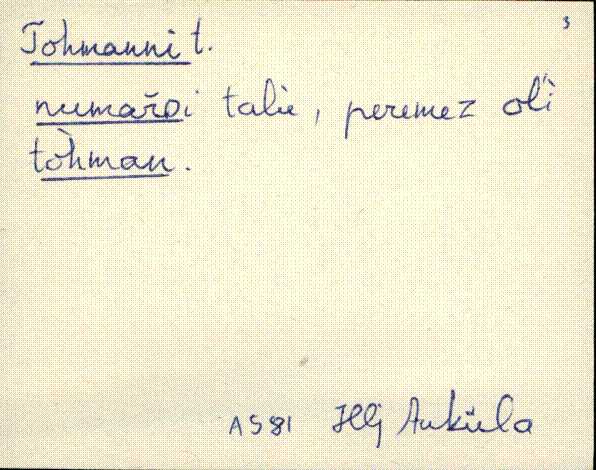 3
Tohmanni t.
numaroi talü, peremez ol'i
tòhman.
AS81 Jlj Anküla